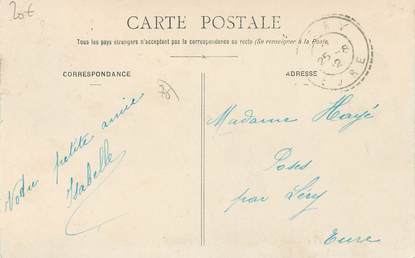 20€
CARTE POSTALE
Tous les pays étrangers n'acceptent pas la correspondance au recto (Se renseigner à la Poste).
CORRESPONDANCE
ADRESSE
25 - 8
EURE
Votre petite amie
Isabelle
Madame Hayé
Poses
par Léry
Eure